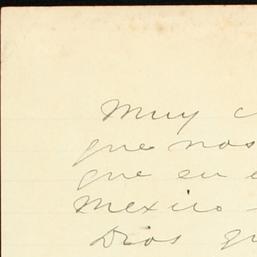 Muy
que nos
que en
Mexico
Dios